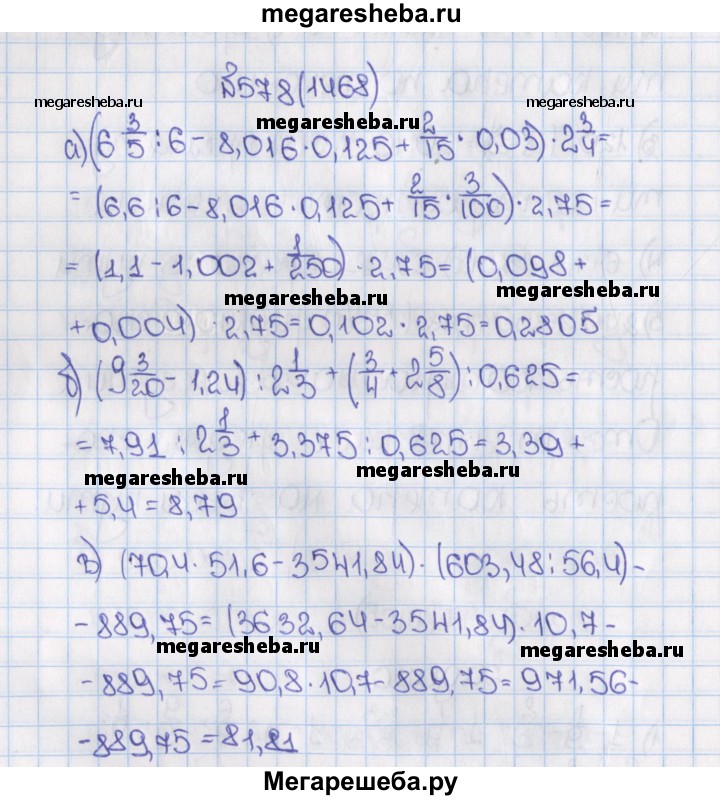 megaresheba.ru
№578(1468)
megaresheba.ru megaresheba.ru megaresheba.ru
а) (6 3/5 : 6 - 8,016 · 0,125 + 2/15 · 0,03) · 2 3/4 =
= (6,6 : 6 - 8,016 · 0,125 + 2/15 · 3/100) · 2,75 =
= (1,1 - 1,002 + 1/250) · 2,75 = (0,098 +
megaresheba.ru megaresheba.ru
+ 0,004) · 2,75 = 0,102 · 2,75 = 0,2805
б) (9 3/20 - 1,24) : 2 1/3 + (3/4 + 2 5/8) : 0,625 =
= 7,91 : 2 1/3 + 3,375 : 0,625 = 3,39 +
megaresheba.ru megaresheba.ru
+ 5,4 = 8,79
в) (70,4 · 51,6 - 3541,84) · (603,48 : 56,4) -
- 889,75 = (3632,64 - 3541,84) · 10,7 -
megaresheba.ru megaresheba.ru
- 889,75 = 90,8 · 10,7 - 889,75 = 971,56 -
- 889,75 = 81,81
Мегарешеба.ру